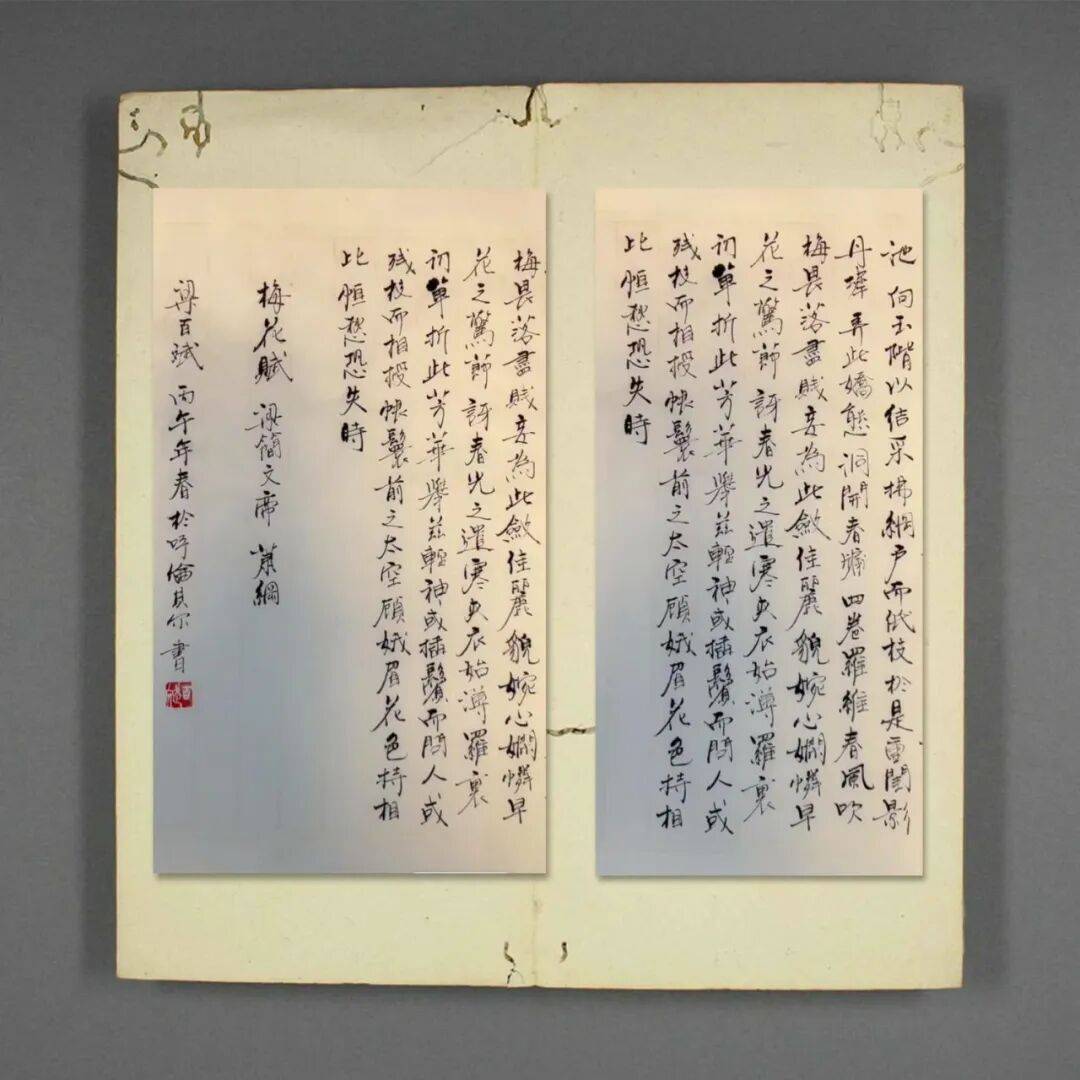 池向玉階以結采拂網戶而低枝於是重閨影
丹墀弄此嬌態洞開春牖四卷羅維春風吹
梅畏落盡賤妾為此斂佳麗貌婉心嫻憐早
花之驚節訝春光之遣寒夾衣始薄羅裏
初單折此芳華舉茲輕神或插鬢而問人或
殘枝而相授恨鬟前之太空顧娥眉花色持相
比恒愁恐失時
梅畏落盡賤妾為此斂佳麗貌婉心嫻憐早
花之驚節訝春光之遣寒夾衣始薄羅裏
初單折此芳華舉茲輕神或插鬢而問人或
殘枝而相授恨鬟前之太空顧娥眉花色持相
比恒愁恐失時
梅花賦 梁簡文帝 蕭綱
梁百斌 丙午年春於呼倫貝尔書